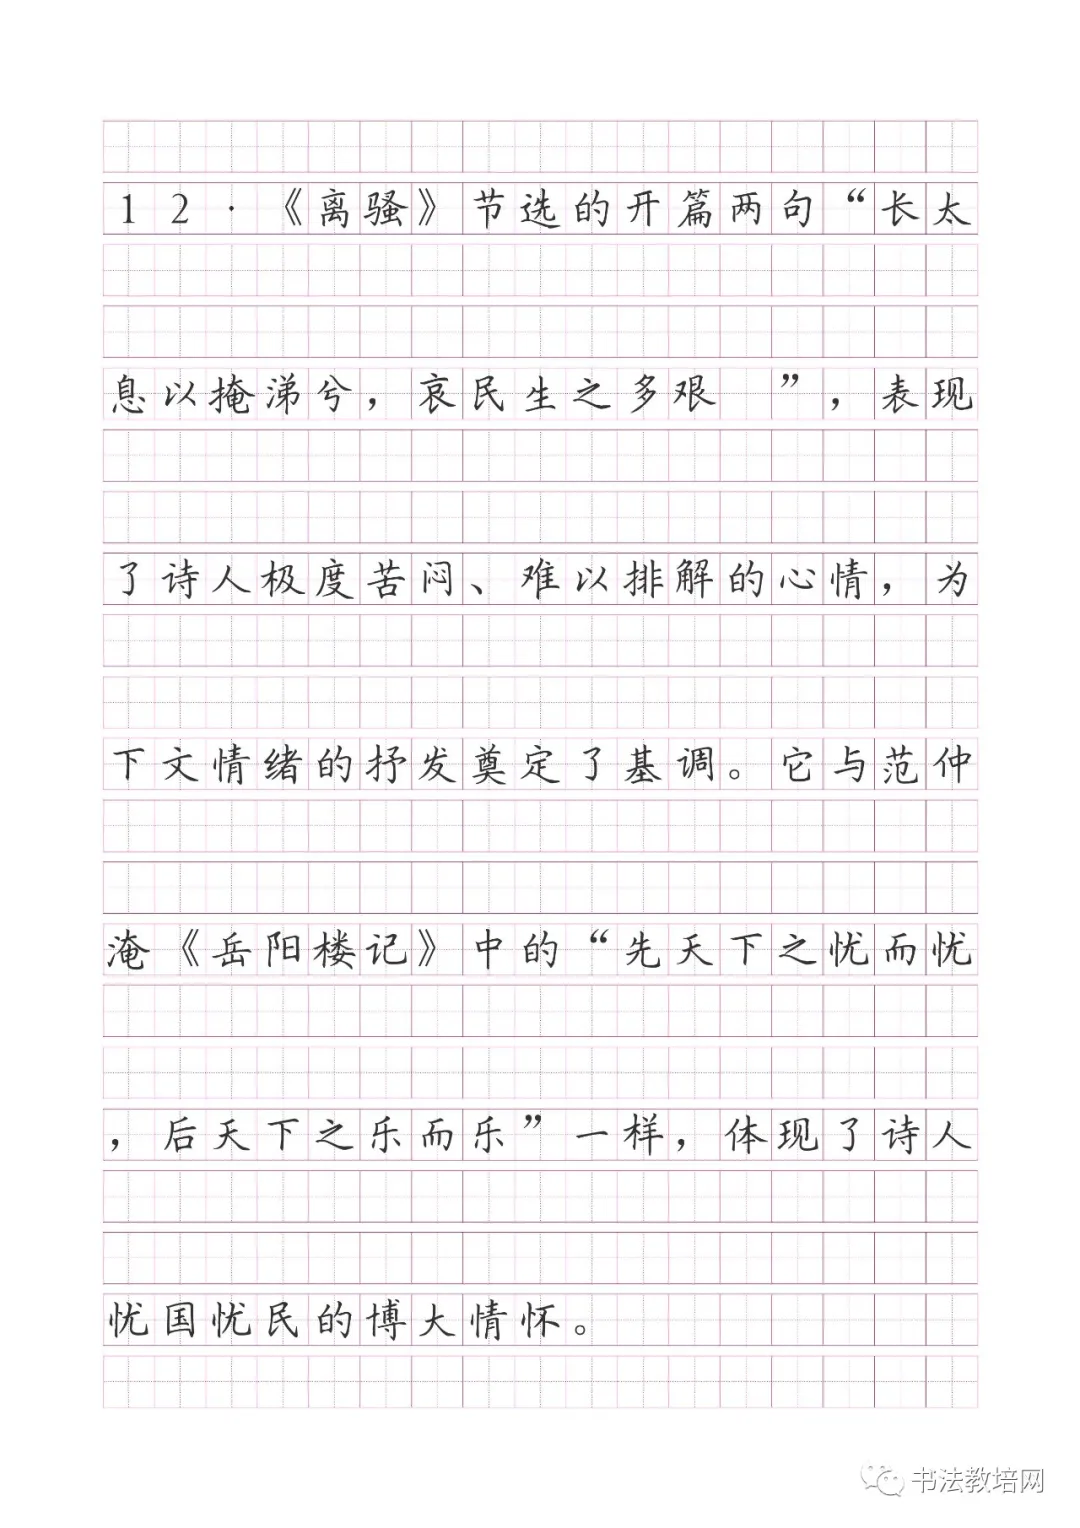 12·《离骚》节选的开篇两句“长太
息以掩涕兮，哀民生之多艰 ”，表现
了诗人极度苦闷、难以排解的心情，为
下文情绪的抒发奠定了基调。它与范仲
淹《岳阳楼记》中的“先天下之忧而忧
，后天下之乐而乐”一样，体现了诗人
忧国忧民的博大情怀。
书法教培网